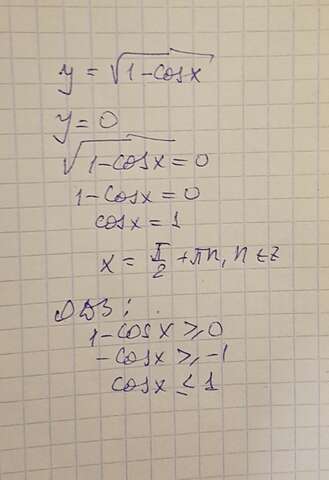 y = √1-cosx
y = 0
√1-cosx = 0
1-cosx = 0
cosx = 1
x = π/2 + πn, n ∈ z
ОДЗ:
1-cosx ≥ 0
-cosx ≥ -1
cosx ≤ 1